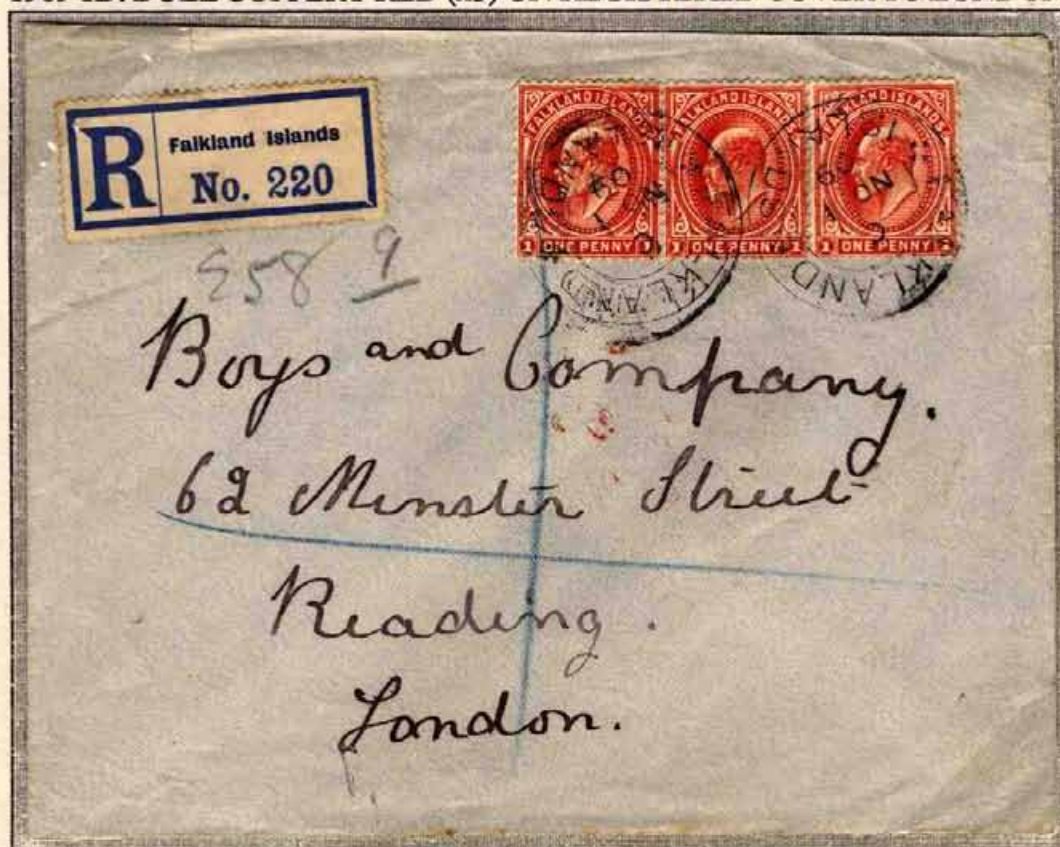 R Falkland Islands
No. 220
FALKLAND ISLANDS FALKLAND ISLANDS FALKLAND ISLANDS
1 ONE PENNY 1 1 ONE PENNY 1 1 ONE PENNY
558 9
Boys and Company.
62 Minster Street
Reading.
London.